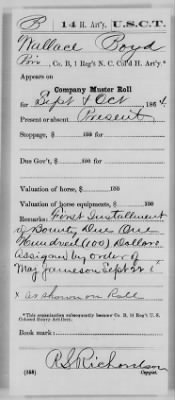 B | 14 H. Art'y. | U.S.C.T.
Wallace Boyd
Priv, Co. B, 1 Reg't N. C. Col'd H. Art'y.*
Appears on
Company Muster Roll
for Sept & Oct, 1864.
Present or absent Present
Stoppage, $ 100 for
Due Gov't, $ 100 for
Valuation of horse, $ 100
Valuation of horse equipments, $ 100
Remarks: First Installment
of Bounty Due One
Hundred (100) Dollars
Assigned by order of
Maj Jameson Sept 22
x as shown on Roll
*This organization subsequently became Co. B, 14 Reg't U. S.
Colored Heavy Artillery.
Book mark:
R S Richardson
(358) Copyist.